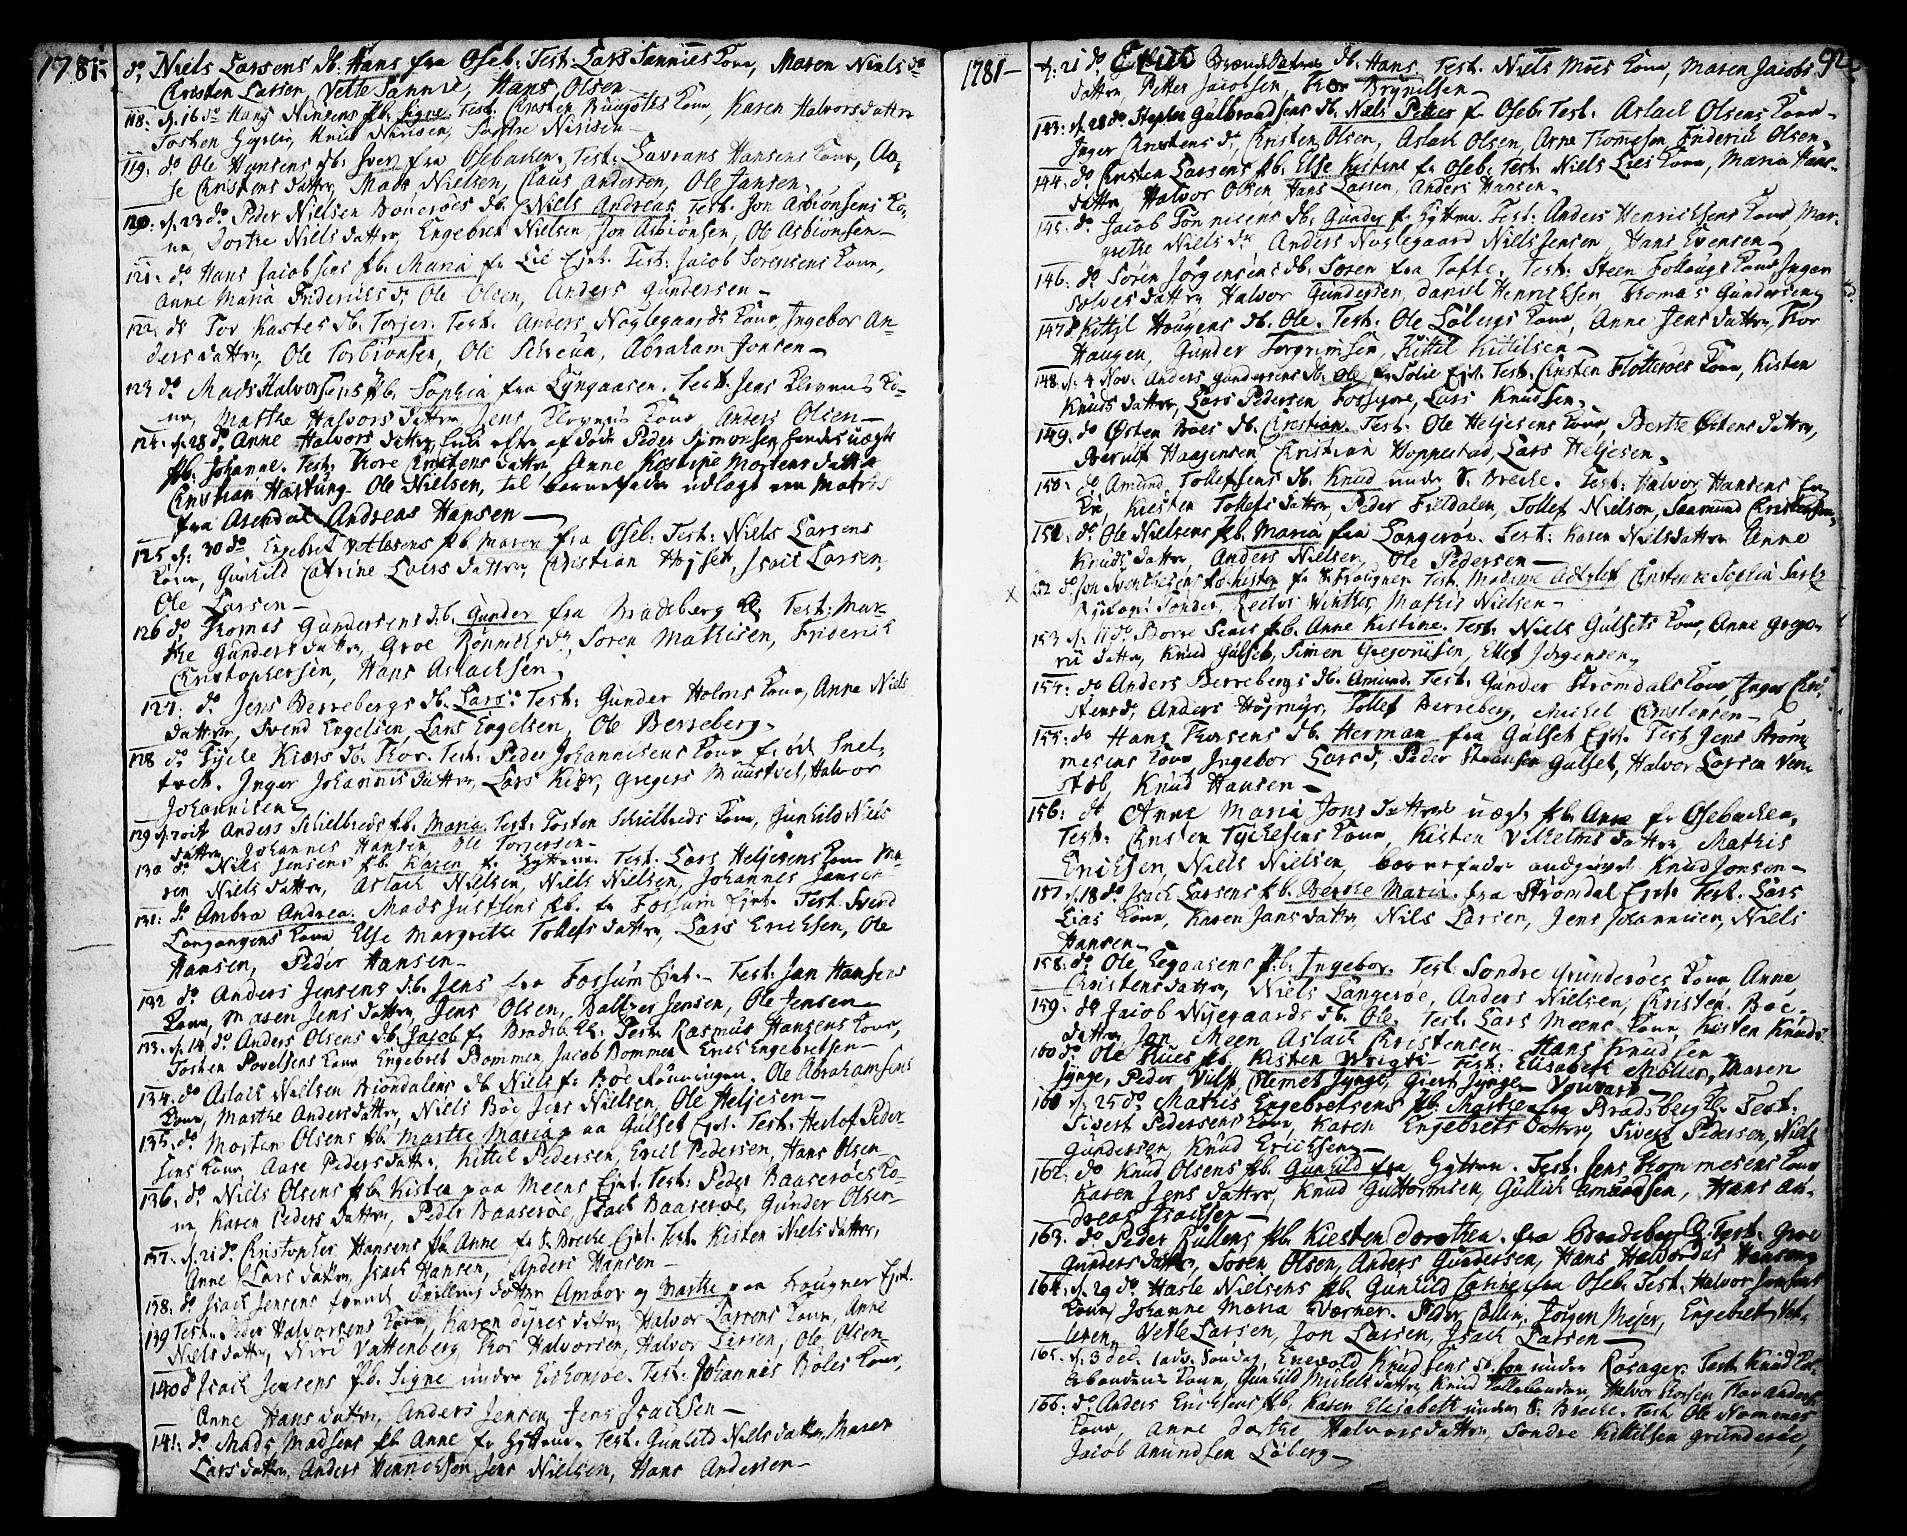 1781.
do Niels Larsens db. Hans fra Oseb. Test. Lars Tannies Kone, Maren Niels do
Christen Larsen, Vetle Tannie, Hans Olsen
118. d. 16 do Hans Nirisens pb. Signe. Test. Christen Kone, Karen Halvors datter
Tosten Knud Nirisen,
119. do Ole Hansens pb. Iver fra Osebachen. Test. Lavrans Hansens Kone, Aa-
se Christens datter, Mads Nielsen, Claus Andersen, Ole Jansen.
120. d. 23 do Peder Nielsen Bønerøes db. Niels Andreas. Test. Jon Asbiønsens Ko-
ne, Dorthe Niels datter, Engebret Nielsen, Jon Asbiønsen, Ole Asbiønsen
121. do Hans Jacobsens pb. Maria fr Lie Ejet. Test. Jacob Sørensens Kone,
Anne Maria Friderics d. Ole Olsen, Anders Gundersen
122. do Tov Kastes db. Torjer. Test. Anders Noglegaards Kone, Ingebor An-
ders datter, Ole Torbiønsen, Ole Schreua, Abraham Jonsen
123 do Mads Halvorsens pb. Sophia fra Lyngaasen. Test. Jens Kone,
Marthe Halvors datter, Jens Kone, Anders Olsen
124. d. 28 do Anne Halvors datter Enke efter afdøde Peder Simonsen hendes uægte
pb. Johanne. Test. Thore Christens datter, Anne Kirstine Mortens datter
Christian Hartung. Ole Nielsen, til barnefader udlagt en Matros
fra Arendal Andreas Hansen
125 d. 30 do Engebret Vetlesens pb Maren fra Oseb. Test. Niels Larsens
Kone, Gunhild Catrine Laers datter, Christian Højset, Isach Larsen,
Ole Larsen
126 do Thomas Gundersens db. Gunder fra Bradsberg Kl. Test. Mar-
the Gunders datter, Groe Rønnichs dr, Søren Mathisen, Friderich
Christophersen, Hans Aslachsen
127. do Jens Berrebergs db. Lars. Test. Gunder Holms Kone, Anne Niels
datter, Svend Engelsen, Lars Engelsen, Ole Berreberg.
128 do Tyche Kiærs db. Thor. Test. Peder Johannisens Kone fr øde Snel-
tvet. Inger Johannis datter, Lars Kiær, Gregers Muustvet, Halvor
Johannisen
129 d. 7 oct Anders Schilbreds pb. Maria. Test. Tosten Schilbreds Kone, Gunhild Niels
datter, Johannes Hansen Ole Torjersen
130 do Niels Jensens pb. Karen fr Hytten. Test. Lars Heljesens Kone Ma-
ren Niels datter, Aslach Nielsen, Niels Nielsen, Johannes Jansen
131. do Ambra Andrea. Mads Justsens pb. fr Fossum Ejet. Test. Svend
Langangens Kone Else Margrethe Tollefs datter, Lars Erichsen, Ole
Hansen, Peder Hansen
132 do Anders Jensens db. Jens fra Fossum Ejet. Test. Jan Hansens
Kone, Maren Jens datter, Jens Olsen, Baltzer Jensen, Ole Jensen
133. d. 14 do Anders Olsens db. Jacob fr Bradsb. Kl. Test. Rasmus Hansens Kone,
Tosten Povelsens Kone Engebret Bommen, Jacob Bommen Erich Engebretsen
134. do Aslach Nielsen Biøndalens db Niels fr Bøe Ole Abrahamsens
Kone, Marthe Anders datter, Niels Bøe Jens Nielsen, Ole Heljesen
135. do Morten Olsens pb. Marthe Maria paa Gulset Ejet. Test. Herlof Peder-
sens Kone, Aase Peders datter, Kittil Pedersen, Erich Pedersen, Hans Olsen
136. do Niels Olsens pb. Kisten paa Meens Ejet. Test. Peder Baaserøes Ko-
ne, Karen Peders datter, Peder Baaserøe, Isach Baaserøe, Gunder Olsen
137. d. 21 do Christopher Hansens pb Anne fr N. Breche Ejet. Test. Kisten Niels datter,
Anne Lars datter, Isach Hansen, Anders Hansen
138. do Isach Jensens tvende Tvillings døttre Ambor og Marthe paa Fraugner Ejet.
139 Test. Peder Halvorsens Kone, Karen Dyres datter, Halvor Larsens Kone, Anne
Niels datter, Niri Vattenberg Thor Halvorsen, Halvor Larsen, Ole Olsen
140 do Isach Jensens pb. Signe under Eichonrøe. Test. Johannes Bøles Kone,
Anne Hans datter, Anders Jensen, Jens Isachsen
141. do Mads Madsens pb. Anne fr Hytten. Test. Gunhild Niels datter, Maren
Lars datter, Anders Henrichsen, Jens Nielsen, Hans Andersen
1781 92.
d. 21 do Erich db. Hans. Test. Niels Moes Kone, Maren Jacobs
datter, Petter Jacobsen, Thor Brynilsen
143. d. 28 do Stephen Gulbrandsens db. Niels Petter fr Oseb. Test. Aslach Olsens Kone
Inger Christens dr, Christen Olsen, Aslach Olsen, Arne Thomesen, Friderich Olsen.
144. do Christen Larsens pb. Else Kistine fr Oseb. Test. Niels Lies Kone, Maria Hans
datter, Halvor Olsen, Hans Larsen, Anders Hansen.
145. do Jacob Tønnesens db. Gunder fr Hytten. Test. Anders Henrichsens Kone, Mar-
grethe Niels dr Anders Noglegaard Niels Jensen, Hans Evensen
146. do Søren Jørgensens db. Søren fra Tofte. Test. Steen Følkougs Kone, Inger
Solves datter, Halvor Gundersen, Daniel Henrichsen, Thomas Gundersen,
147 do Kittil Hougens db. Ole. Test. Ole Løbergs Kone, Anne Jens datter, Thor
Haugen, Gunder Torgrimsen, Kittil Kittilsen
148 d. 4 Nov. Anders Gundersens db. Ole fr Solie Ejet. Test. Christen Flotterøes Kone, Kisten
Knuds datter, Lars Pedersen Lars Knudsen.
149. do Østen Røes db. Christian. Test. Ole Heljesens Kone, Berthe Østens datter,
Berulf Haagensen, Christian Hoppestad, Lars Heljesen,
150. do Amund Tollefsens db. Knud under N. Breche. Test. Halvor Hansens En-
ke, Kirsten Tollefs datter, Peder Fieldalen, Tollef Nielsen, Saamund Christensen,
151. do Ole Nielsens pb. Maria fra Langerøe. Test. Karen Niels datter Anne
Knuds datter, Anders Nielsen, Ole Pedersen
x 152 do Jon Svenchesens Kisten fr N. Fraugner. Test. Madame Adzlef, Christence Sophia
Sønder, Rector Winther, Mathis Nielsen
153 d. 11 do Børre Sems pb. Anne Kistine. Test. Niels Gulsets Kone, Anne Grego-
rii datter, Knud Gulset, Simen Gregoriisen, Ellef Jørgensen,
154. do Anders Berrebergs db. Amund. Test. Gunder Strømdals Kone, Inger Chri-
stens dr, Anders Højmyr, Tollef Berreberg, Michel Christensen
155. do Hans Thorsens db. Herman fra Gulset Ejet. Test Jens Strøm
mesens Kone Ingebor Lars dr, Peder Gulset, Halvor Larsen Ven-
støb, Knud Hansen
156. do Anne Maria Jons datters uægte pb. Anne fr Osebachen,
Test. Christen Tychesens Kone, Kisten Vilhelms datter, Mathis
Erichsen, Niels Nielsen, barnefader angivet Knud Jonsen
157 d. 18 do Isach Larsens pb. Berthe Maria fra Strømdal Ejet. Test. Lars
Lias Kone, Karen Jans datter, Nils Larsen, Jens Johannisen, Niels
Hansen
158. do Ole Legaasens pb. Ingebor. Test. Søndre Grunderøes Kone, Anne
Christens datter, Niels Langerøe, Anders Nielsen, Christen Bøe
159. do Jacob Nyegaards db. Ole. Test. Lars Meens Kone, Kisten Knuds-
datter, Jon Meen Aslach Christensen Hans Knudsen
160 do Ole Rues pb. Kisten Wrigts. Test. Elisabeth Møller, Maren
Jynge, Peder Clemet Jynge, Giert Jynge
160 d. 25 do Mathis Engebretsens pb. Marthe fra Bradsberg Kl. Test.
Sivert Pedersens Kone, Karen Engebrets datter, Sivert Pedersen, Niels
Gundersen, Knud Erichsen
162. do Knud Olsens pb. Gunhild fra Hytten. Test. Jens Thommesens Kone
Karen Jens datter, Knud Guttormsen, Gullich Amundsen, Hans An-
dreas Isachsen
163. do Peder Rullens pb. Kiesten Dorothea. fra Bradsberg Kl. Test. Groe
Gunders datter, Søren Olsen, Anders Gundersen, Hans Halvor Hansen
164. d. 29 do Hasle Nielsens pb. Gunhild Cathrine fra Oseb. Test. Halvor Jonsens
Kone, Johanne Maria Værner. Peder Collin, Jørgen Mejer, Engebret Vet-
lesen, Vetle Larsen, Jon Larsen, Isach Larsen
165. d. 3 dec. 1 adv. Søndag, Enevold Knudsens db. Jon under Rosager. Test. Knud
Kone, Gunhild Michels datter, Knud Halvor Thorsen, Thor Anders
166. do Anders Erichsens pb. Karen Elisabeth under N. Breche. Test. Ole Nommes
Kone, Anne Dorthe Halvors datter, Søndre Kittelsen Grunderøe,
Jacob Amundsen Løberg